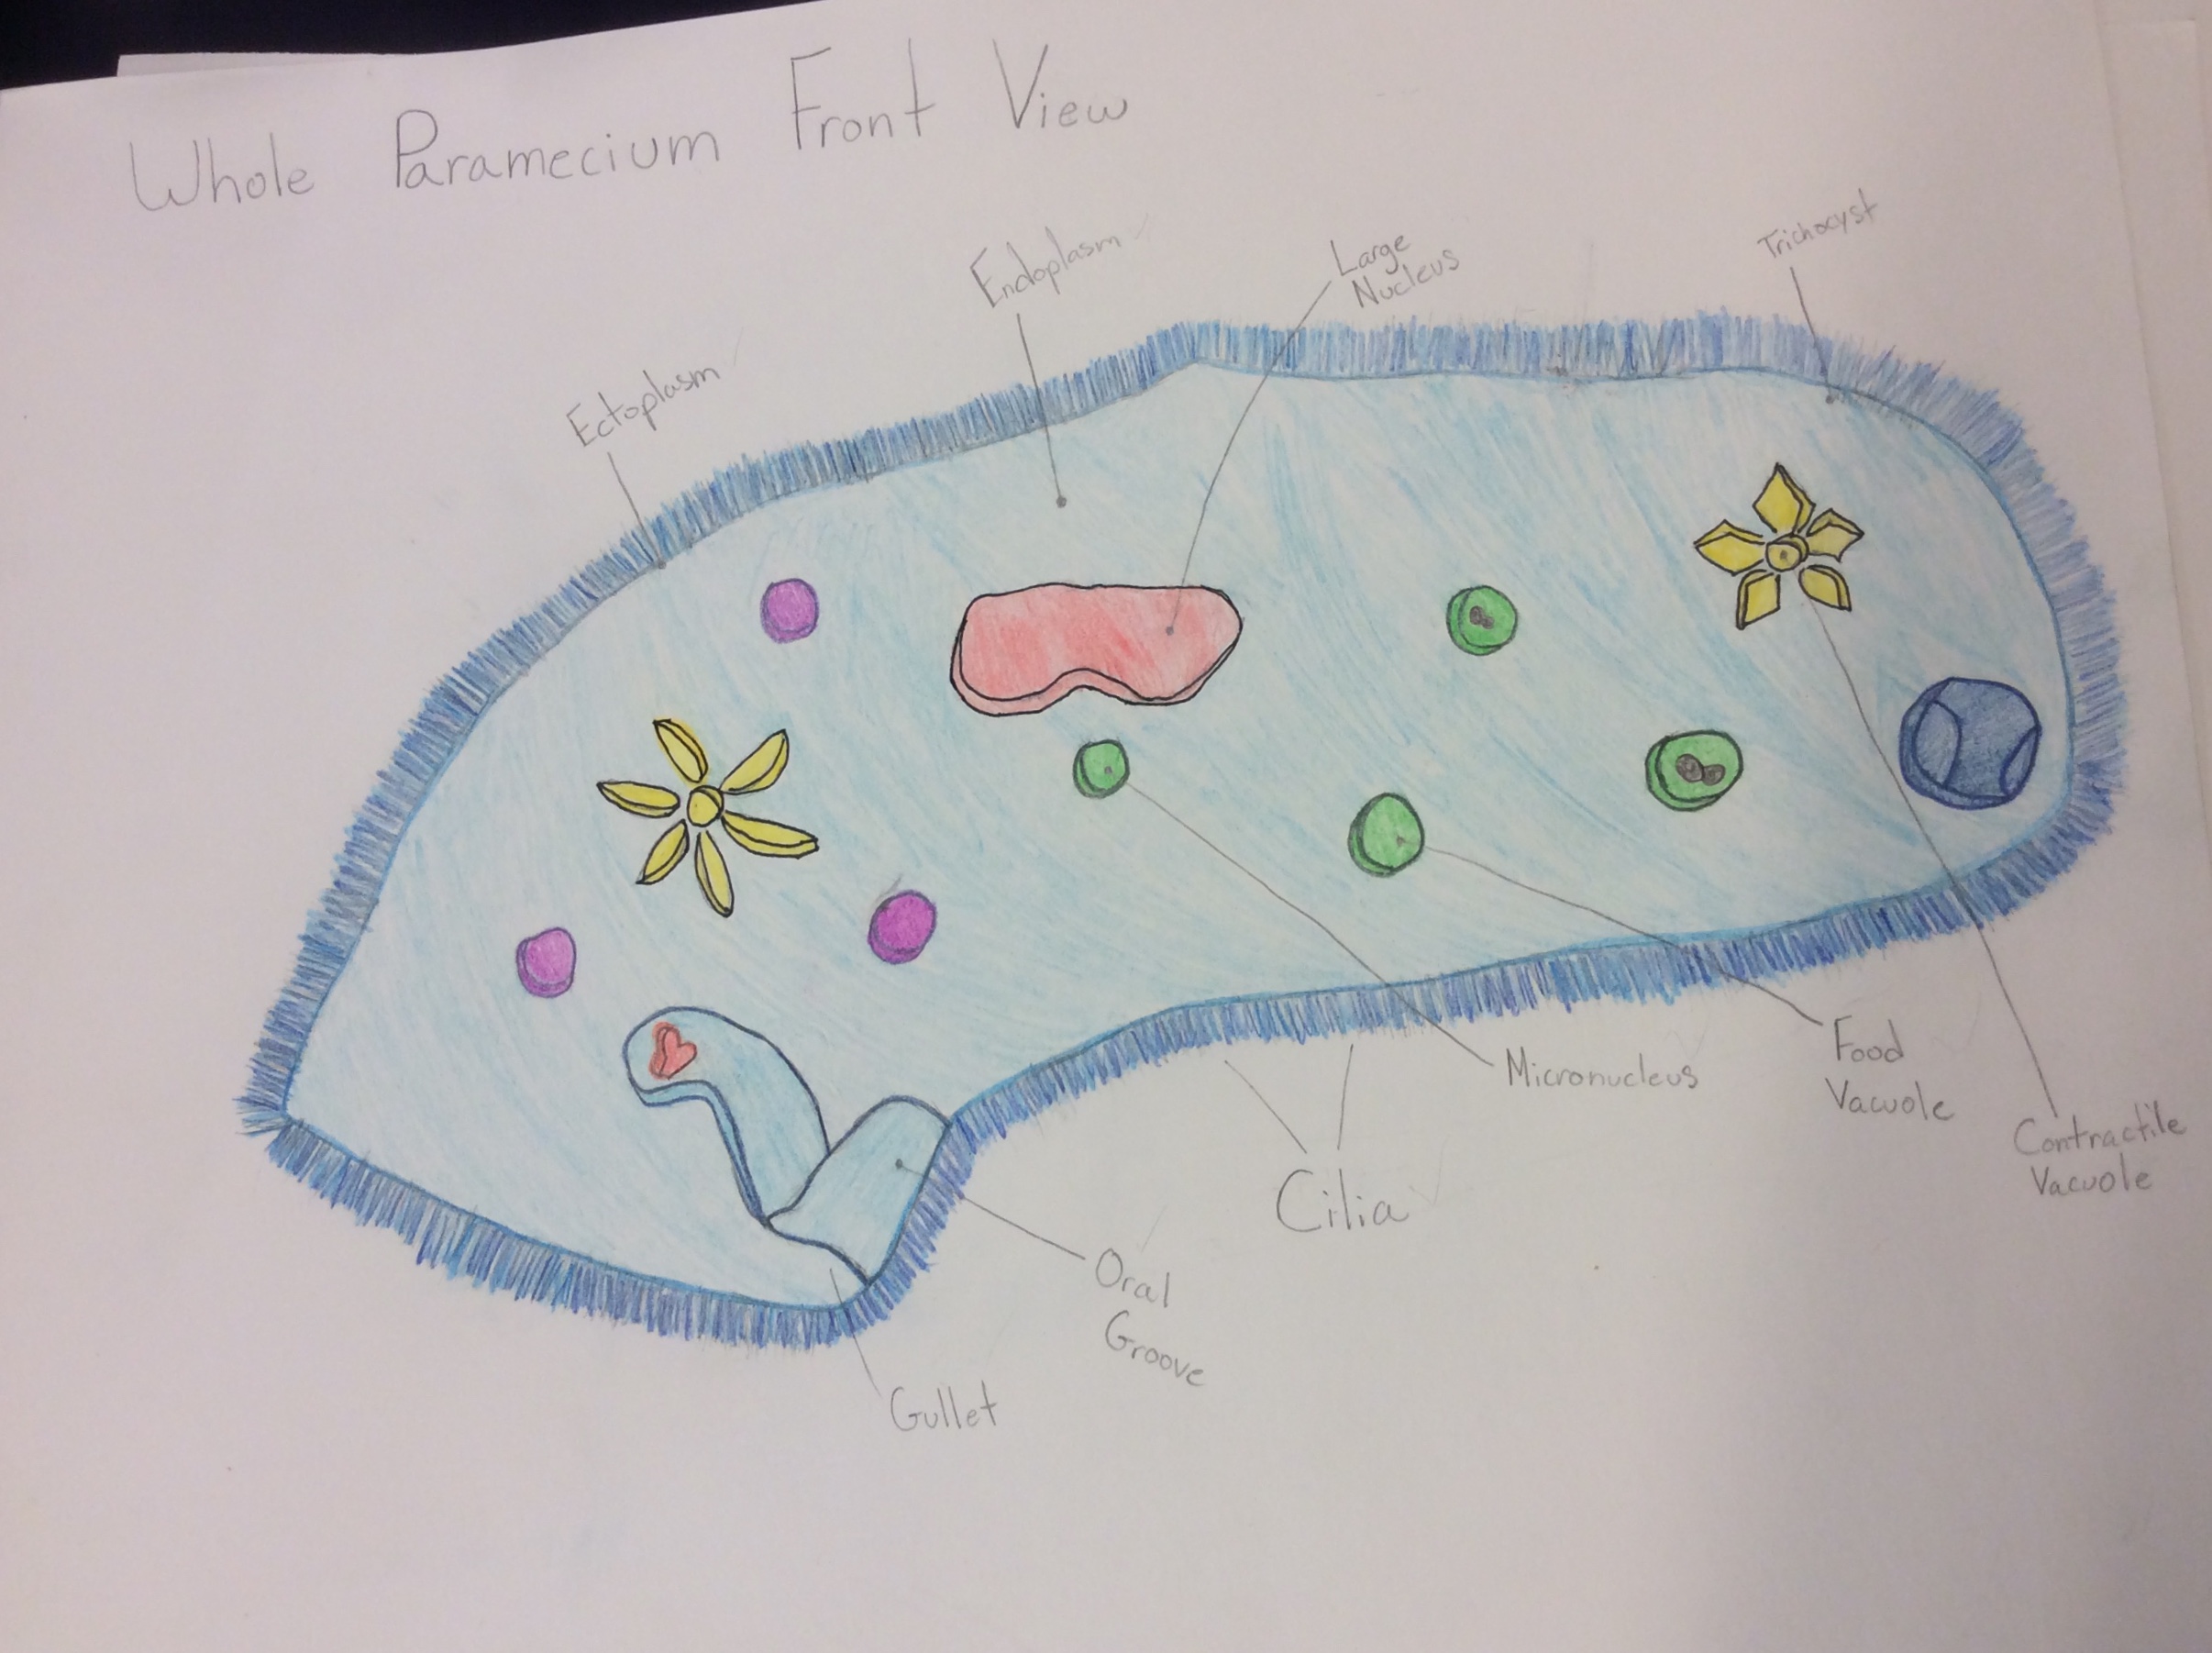 Whole Paramecium Front View
Endoplasm
Large
Nucleus
Trichocyst
Ectoplasm
Micronucleus
Food
Vacuole
Contractile
Vacuole
Cilia
Oral
Groove
Gullet